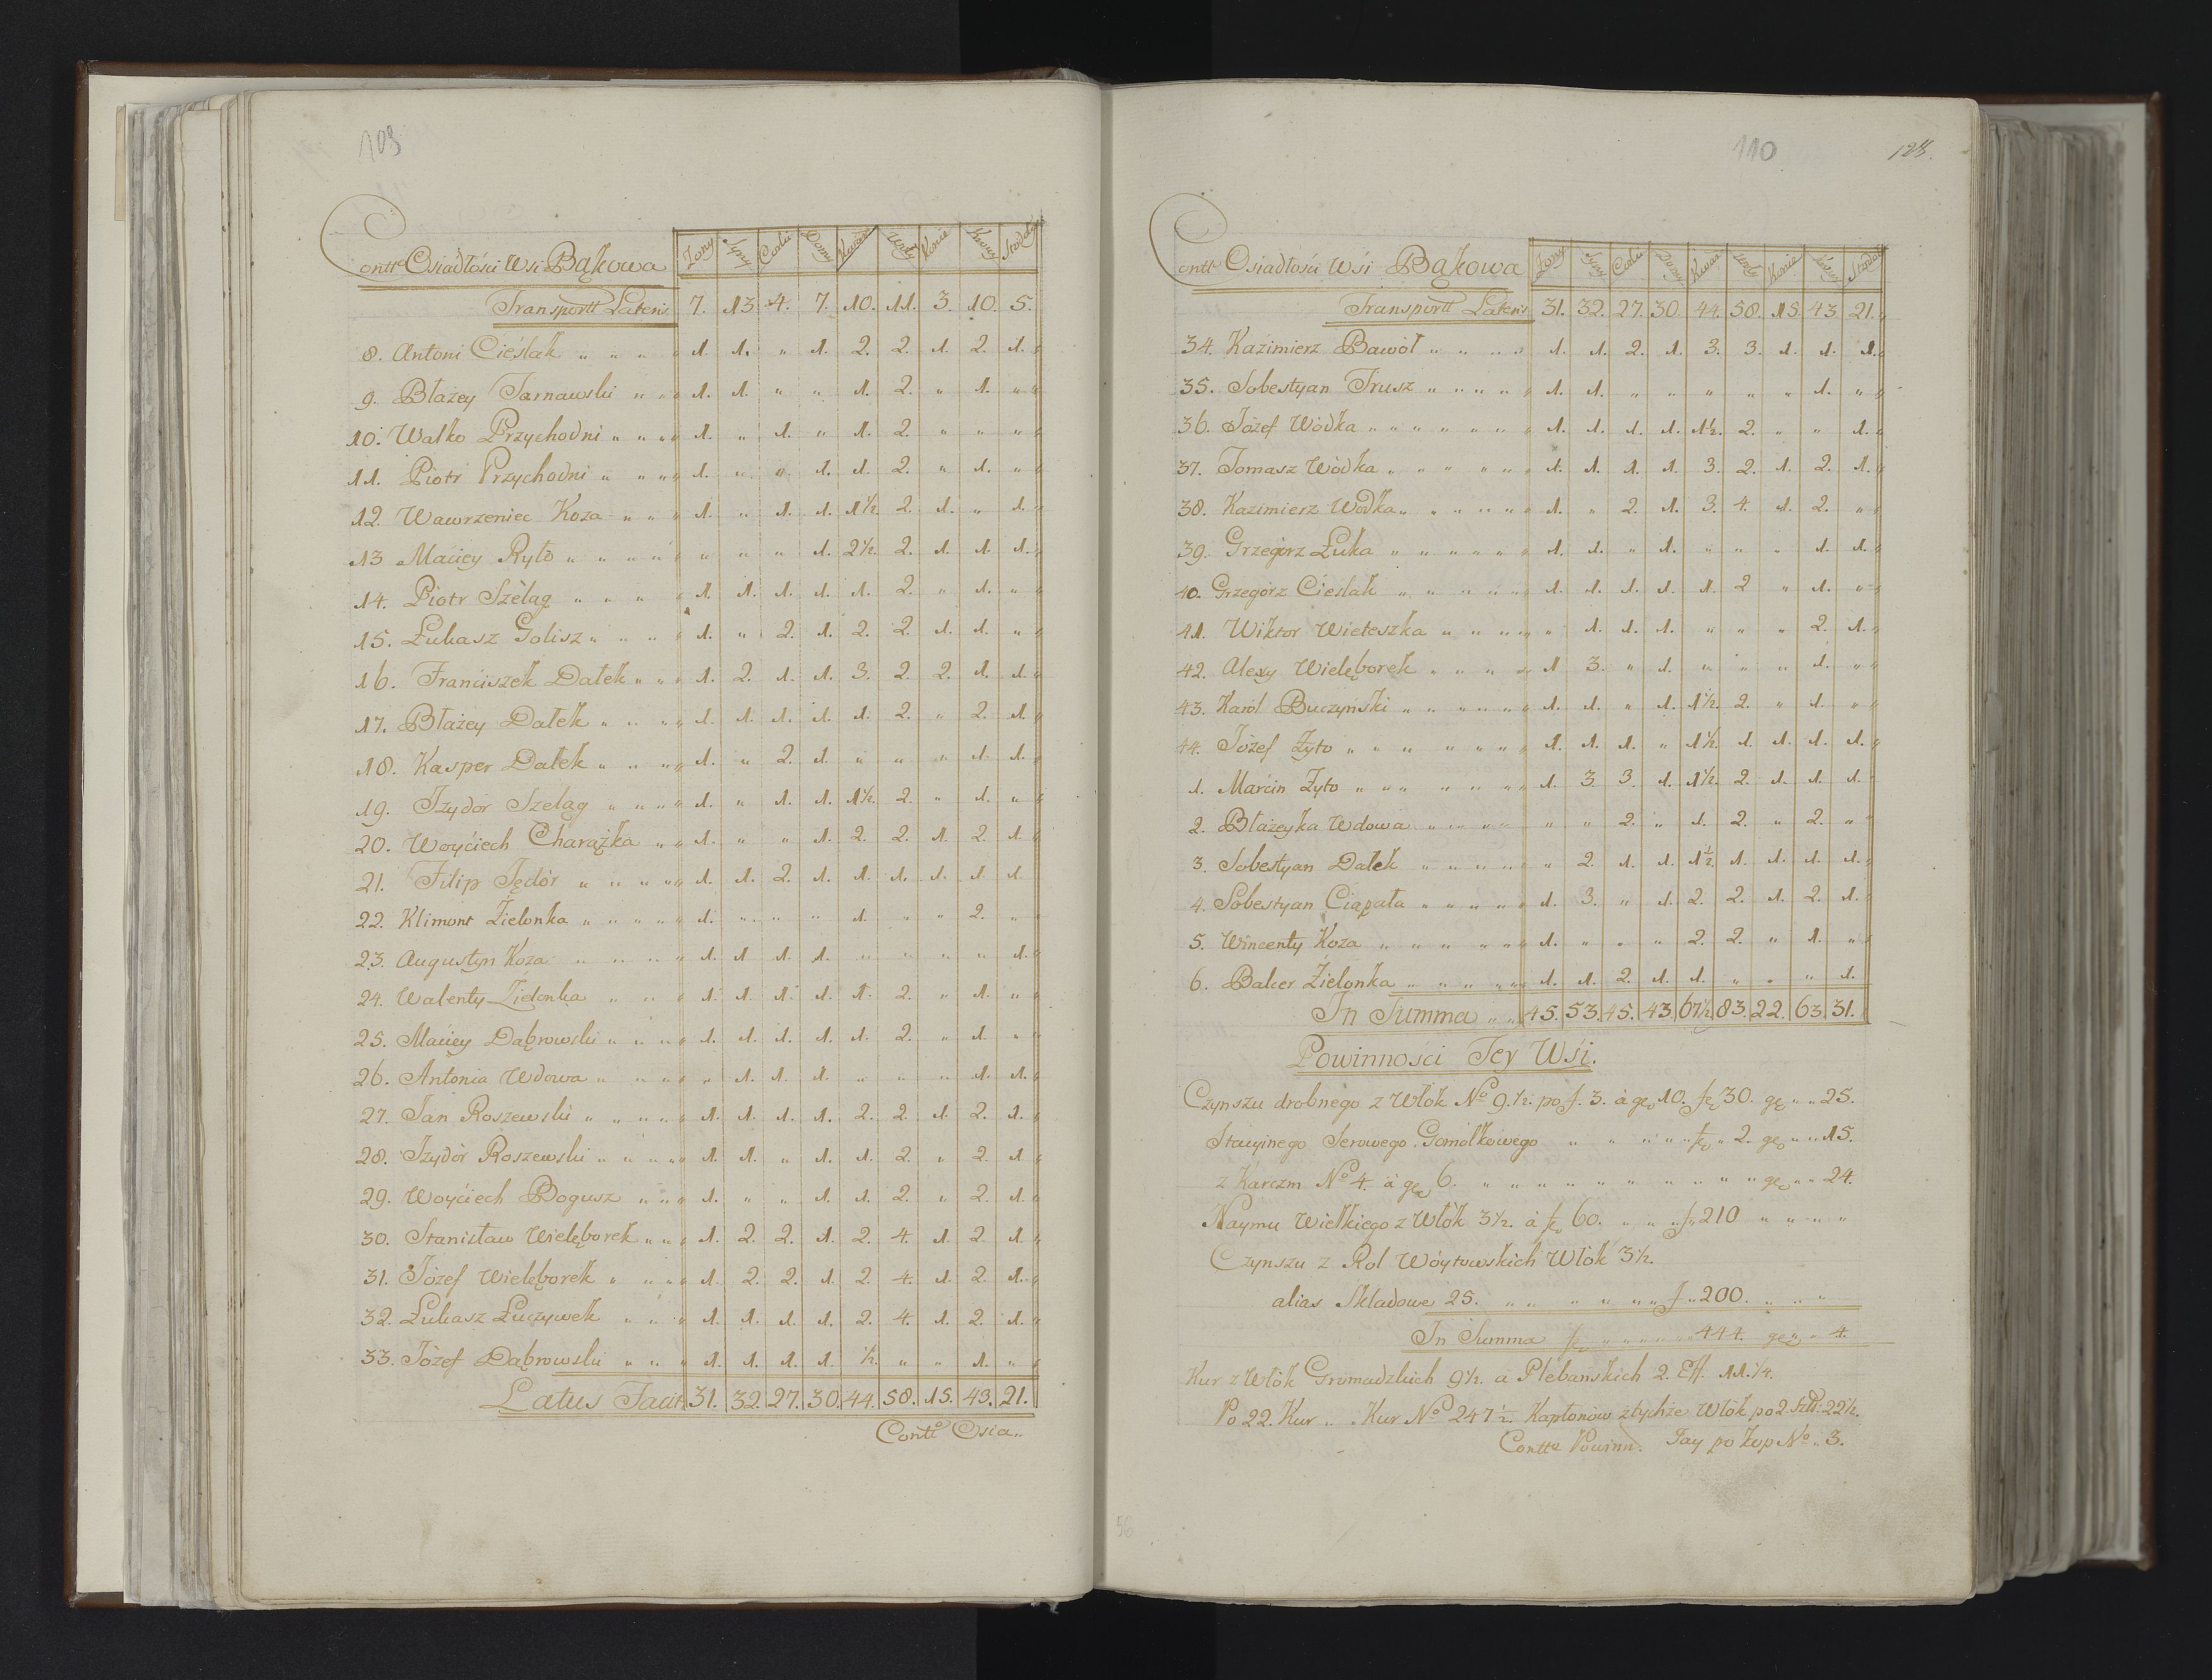 109
Contt Osiadłości Wsi Bąkowa Żony Syny Corki Domy Kwart Woły Konie Krowy Stodoły
Transportt Lateris 7. 13 4. 7. 10. 11. 3. 10. 5.
8. Antoni Cieślak „ „ „ „ 1. 1. „ 1. 2. 2. 1. 2. 1. „
9. Błażey Tarnawski „ „ „ 1. 1. „ „ 1. 2. „ 1. „ „
10. Walko Przychodni „ „ „ „ 1. „ 1. „ 1. 2. „ „ „ „
11. Piotr Przychodni „ „ „ „ 1. „ „ 1. 1. 2. „ 1. „ „
12. Wawrzeniec Koza „ „ „ 1. „ 1. 1. 1½ 2. 1. „ 1. „
13 Maciey Ryło „ „ „ „ „ „ „ „ 1. 2½. 2. 1. 1. 1. „
14. Piotr Szeląg „ „ „ „ 1. 1. 1. 1. 1. 2. „ 1. „ „
15. Łukasz Golisz „ „ „ „ 1. „ 2. 1. 2. 2. 1. 1. „ „
16. Franciszek Dałek „ „ „ 1. 2. 1. 1. 3. 2. 2. 1. 1. „
17. Błażey Dałek „ „ „ „ 1. 1. 1. 1. 1. 2. „ 2. 1. „
18. Kasper Dałek „ „ „ „ 1. „ 2. 1. „ „ „ 1. 1. „
19. Izydor Szeląg „ „ „ „ 1. „ 1. 1. 1½. 2. „ 1. „ „
20. Woyciech Charążka „ „ 1. „ „ 1. 2. 2. 1. 2. 1. „
21. Filip Jędór „ „ „ „ „ 1. 1. 2. 1. 1. 1. 1. 1. 1.
22. Klimont Zielonka „ „ „ „ „ 1. „ „ „ 1. „ „ 2. „ „
23. Augustyn Koza „ „ „ „ „ 1. 1 1. 1. „ „ „ „ 1. „
24. Walenty Zielonka „ „ „ 1. 1. 1. 1. 1. 2. „ 1. „ „
25. Maciey Dąbrowski „ „ „ „ 1. 1. 1. 1. 1. 2. „ 1. „ „
26. Antonia Wdowa „ „ „ „ „ 1. 1. 1. „ „ „ 1. 1. „
27. Jan Roszewski „ „ „ „ „ 1. 1. 1. 1. 2. 2. 1. 2. 1. „
28. Izydor Roszewski „ „ „ „ „ 1. 1. „ 1. 1. 2. „ 2. 1. „
29. Woyciech Bogusz „ „ „ 1. „ „ 1. 1. 2. „ 2. 1. „
30. Stanisław Wielęborek „ „ „ 1. 2. 2. 1. 2. 4. 1. 2. 1. „
31. Józef Wielęborek „ „ „ „ 1. 2. 2. 1. 2. 4. 1. 2. 1. „
32. Łukasz Łuczywek „ „ „ 1. 1. 1. 1. 2. 4. 1. 2. 1. „
33. Józef Dąbrowski „ „ „ 1. 1. 1. 1. ½. „ „ 1. „ „
Latus Facit 31. 32. 27. 30. 44. 58. 15. 43. 21.
Contt Osia „
110
128.
Contt Osiadłości Wśi Bąkowa Żony Syny Corki Domy Kwart Woły Konie Krowy Stodoły
Transportt Lateris 31. 32. 27. 30. 44. 58. 15. 43 21. „
34. Kazimierz Bawół „ „ „ „ 1. 1. 2. 1. 3. 3. 1. 1. 1. „
35. Sobestyan Trusz „ „ „ „ „ „ 1. 1. „ „ „ „ „ 1. „ „
36. Józef Wódka „ „ „ „ „ „ „ 1. 1. 1. 1. 1½. 2. „ „ 1. „
37. Tomasz Wódka „ „ „ „ „ „ 1. 1. 1. 1. 3. 2. 1. 2. 1. „
38. Kazimierz Wodka „ „ „ „ „ „ 1. „ 2. 1. 3. 4. 1. 2. „ „
39. Grzegorz Łuka „ „ „ „ „ „ 1. 1. „ 1. „ „ „ 1. 1. „
40. Grzegorz Cieślak „ „ „ „ „ „ 1. 1. 1. 1. 1. 2 „ 1. „ „
41. Wiktor Wieteszka „ „ „ „ „ „ 1. 1. 1. „ „ „ 2. 1. „
42. Alexy Wielęborek „ „ „ „ „ 1 3. „ 1. „ „ „ 1. „ „
43. Karol Buczyński „ „ „ „ „ „ 1. 1. „ 1. 1½. 2. „ 1. „ „
44. Józef Żyto „ „ „ „ „ „ „ 1. 1. 1. „ 1½. 1. 1. 1. 1. „
1. Marcin Żyto „ „ „ „ „ „ „ 1. 3. 3. 1. 1½. 2. 1. 1. 1. „
2. Błażeyka Wdowa „ „ „ „ „ „ „ 2. „ 1. 2. „ 2. „ „
3. Sobestyan Dałek „ „ „ „ „ „ „ 2. 1. 1. 1½. 1. 1. 1. 1. „
4. Sobestyan Ciąpała „ „ „ „ „ „ 1. 3. „ 1. 2. 2. 1. 2. 1. „
5. Wincenty Koza „ „ „ „ „ „ „ 1. „ „ „ 2. 2. „ 1. „ „
6. Balcer Zielonka „ „ „ „ „ „ 1. 1. 2. 1. 1. „ „ „ 1.
In Summa „ „ 45. 53. 45. 43. 67½ 83. 22. 63. 31.
Powinności Tey Wśi.
Czynszu drobnego z Włok No 9.½. po f. 3. à gr 10. fl 30. gr „ „ 25.
Stacyinego Serowego Gomółkowego „ „ „ „ „ fl „ 2. gr „ „ 15.
z Karczm No 4. à gr 6. „ „ „ „ „ „ „ „ „ „ „ gr „ „ 24.
Naymu Wielkiego z Włók 3½. à fl 60. „ „ „ fl 210 „ „ „ „
Czynszu z Rol Wóytowskich Włók 3½.
alias Składowe 25. „ „ „ „ „ „ „ f „ 200. „ „ „
In Summa fl „ „ „ „ „ „ 444. gr „ „ 4.
Kur z Włók Gromadzkich 9½. a Plebańskich 2. Eff. 11.¼.
Po 22. Kur „ . Kur No 247½. Kapłonów ztychże Włók po 2. Szt. 22½.
Contt Powinn. Jay po kop No „ 3.
56